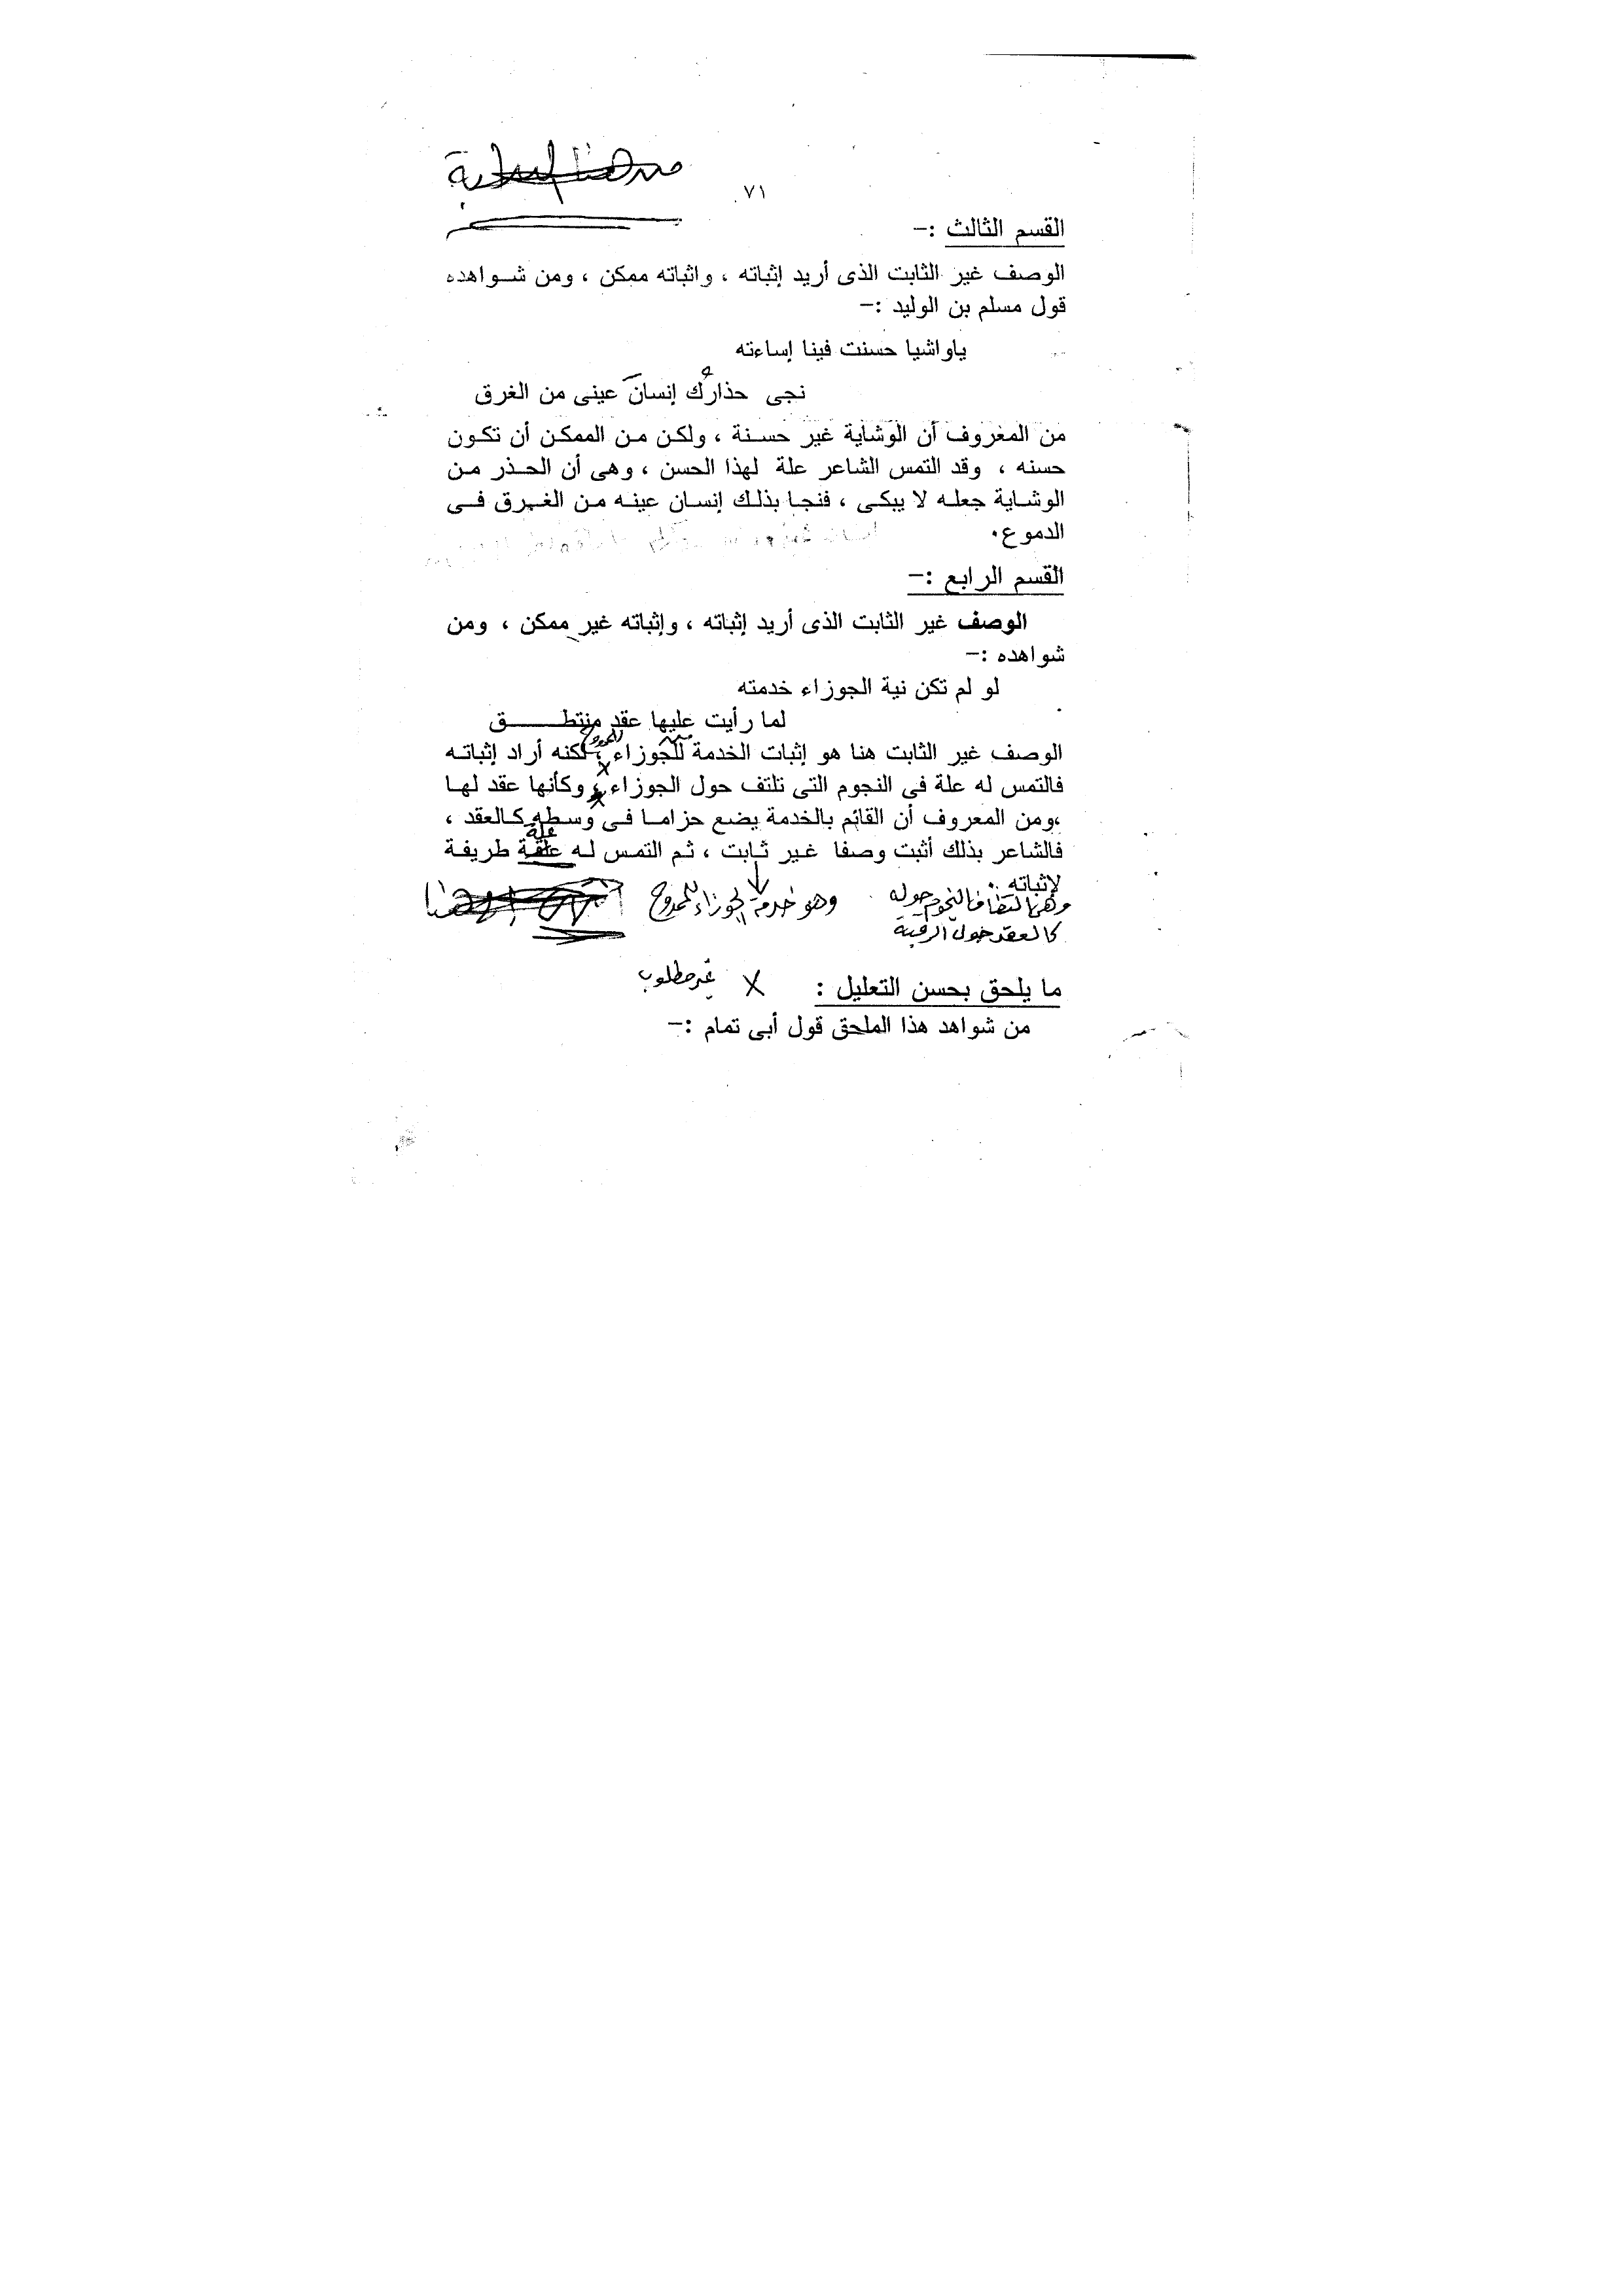 ٧١
القسم الثالث :-
الوصف غير الثابت الذى أريد إثباته ، واثباته ممكن ، ومن شواهده
قول مسلم بن الوليد :-
ياواشيا حسنت فينا إساءته
نجى حذارك إنسان عينى من الغرق
من المعروف أن الوشاية غير حسنة ، ولكن من الممكن أن تكون
حسنه ، وقد التمس الشاعر علة لهذا الحسن ، وهى أن الحذر من
الوشاية جعله لا يبكى ، فنجا بذلك إنسان عينه من الغرق فى
الدموع.
القسم الرابع :-
الوصف غير الثابت الذى أريد إثباته ، وإثباته غير ممكن ، ومن
شواهده :-
لو لم تكن نية الجوزاء خدمته
لما رأيت عليها عقد منتطق
للممدوح
الوصف غير الثابت هنا هو إثبات الخدمة للجوزاء ، لكنه أراد إثباته
فالتمس له علة فى النجوم التى تلتف حول الجوزاء ، وكأنها عقد لها
،ومن المعروف أن القائم بالخدمة يضع حزاما فى وسطه كالعقد ،
علة
فالشاعر بذلك أثبت وصفا غير ثابت ، ثم التمس له علقة طريفة
لإثباته.
وهى التفاف النجوم حوله وهو خدمة الجوزاء للممدوح
كالعقد حول الرقبة
ما يلحق بحسن التعليل : X غير مطلوب
من شواهد هذا الملحق قول أبى تمام :-